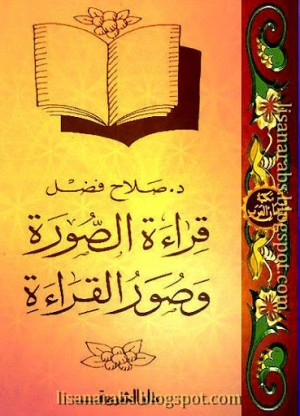 د. صلاح فضل
قراءة الصُّورة
وَصُوَر القِرَاءَةِ
دار الشروق
lisanarabs.blogspot.com
lisanarabs.blogspot.com